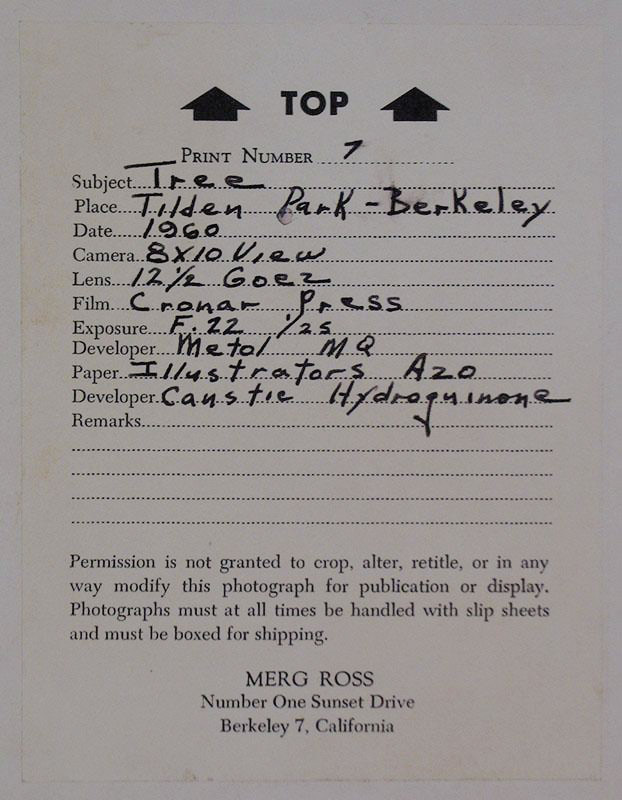 TOP
PRINT NUMBER 7
Subject Tree
Place Tilden Park - Berkeley
Date 1960
Camera 8X10 View
Lens 12½ Goez
Film Cronar Press
Exposure F.22 1/25
Developer Metol MQ
Paper Illustrators Azo
Developer Caustic Hydroquinone
Remarks
Permission is not granted to crop, alter, retitle, or in any
way modify this photograph for publication or display.
Photographs must at all times be handled with slip sheets
and must be boxed for shipping.
MERG ROSS
Number One Sunset Drive
Berkeley 7, California